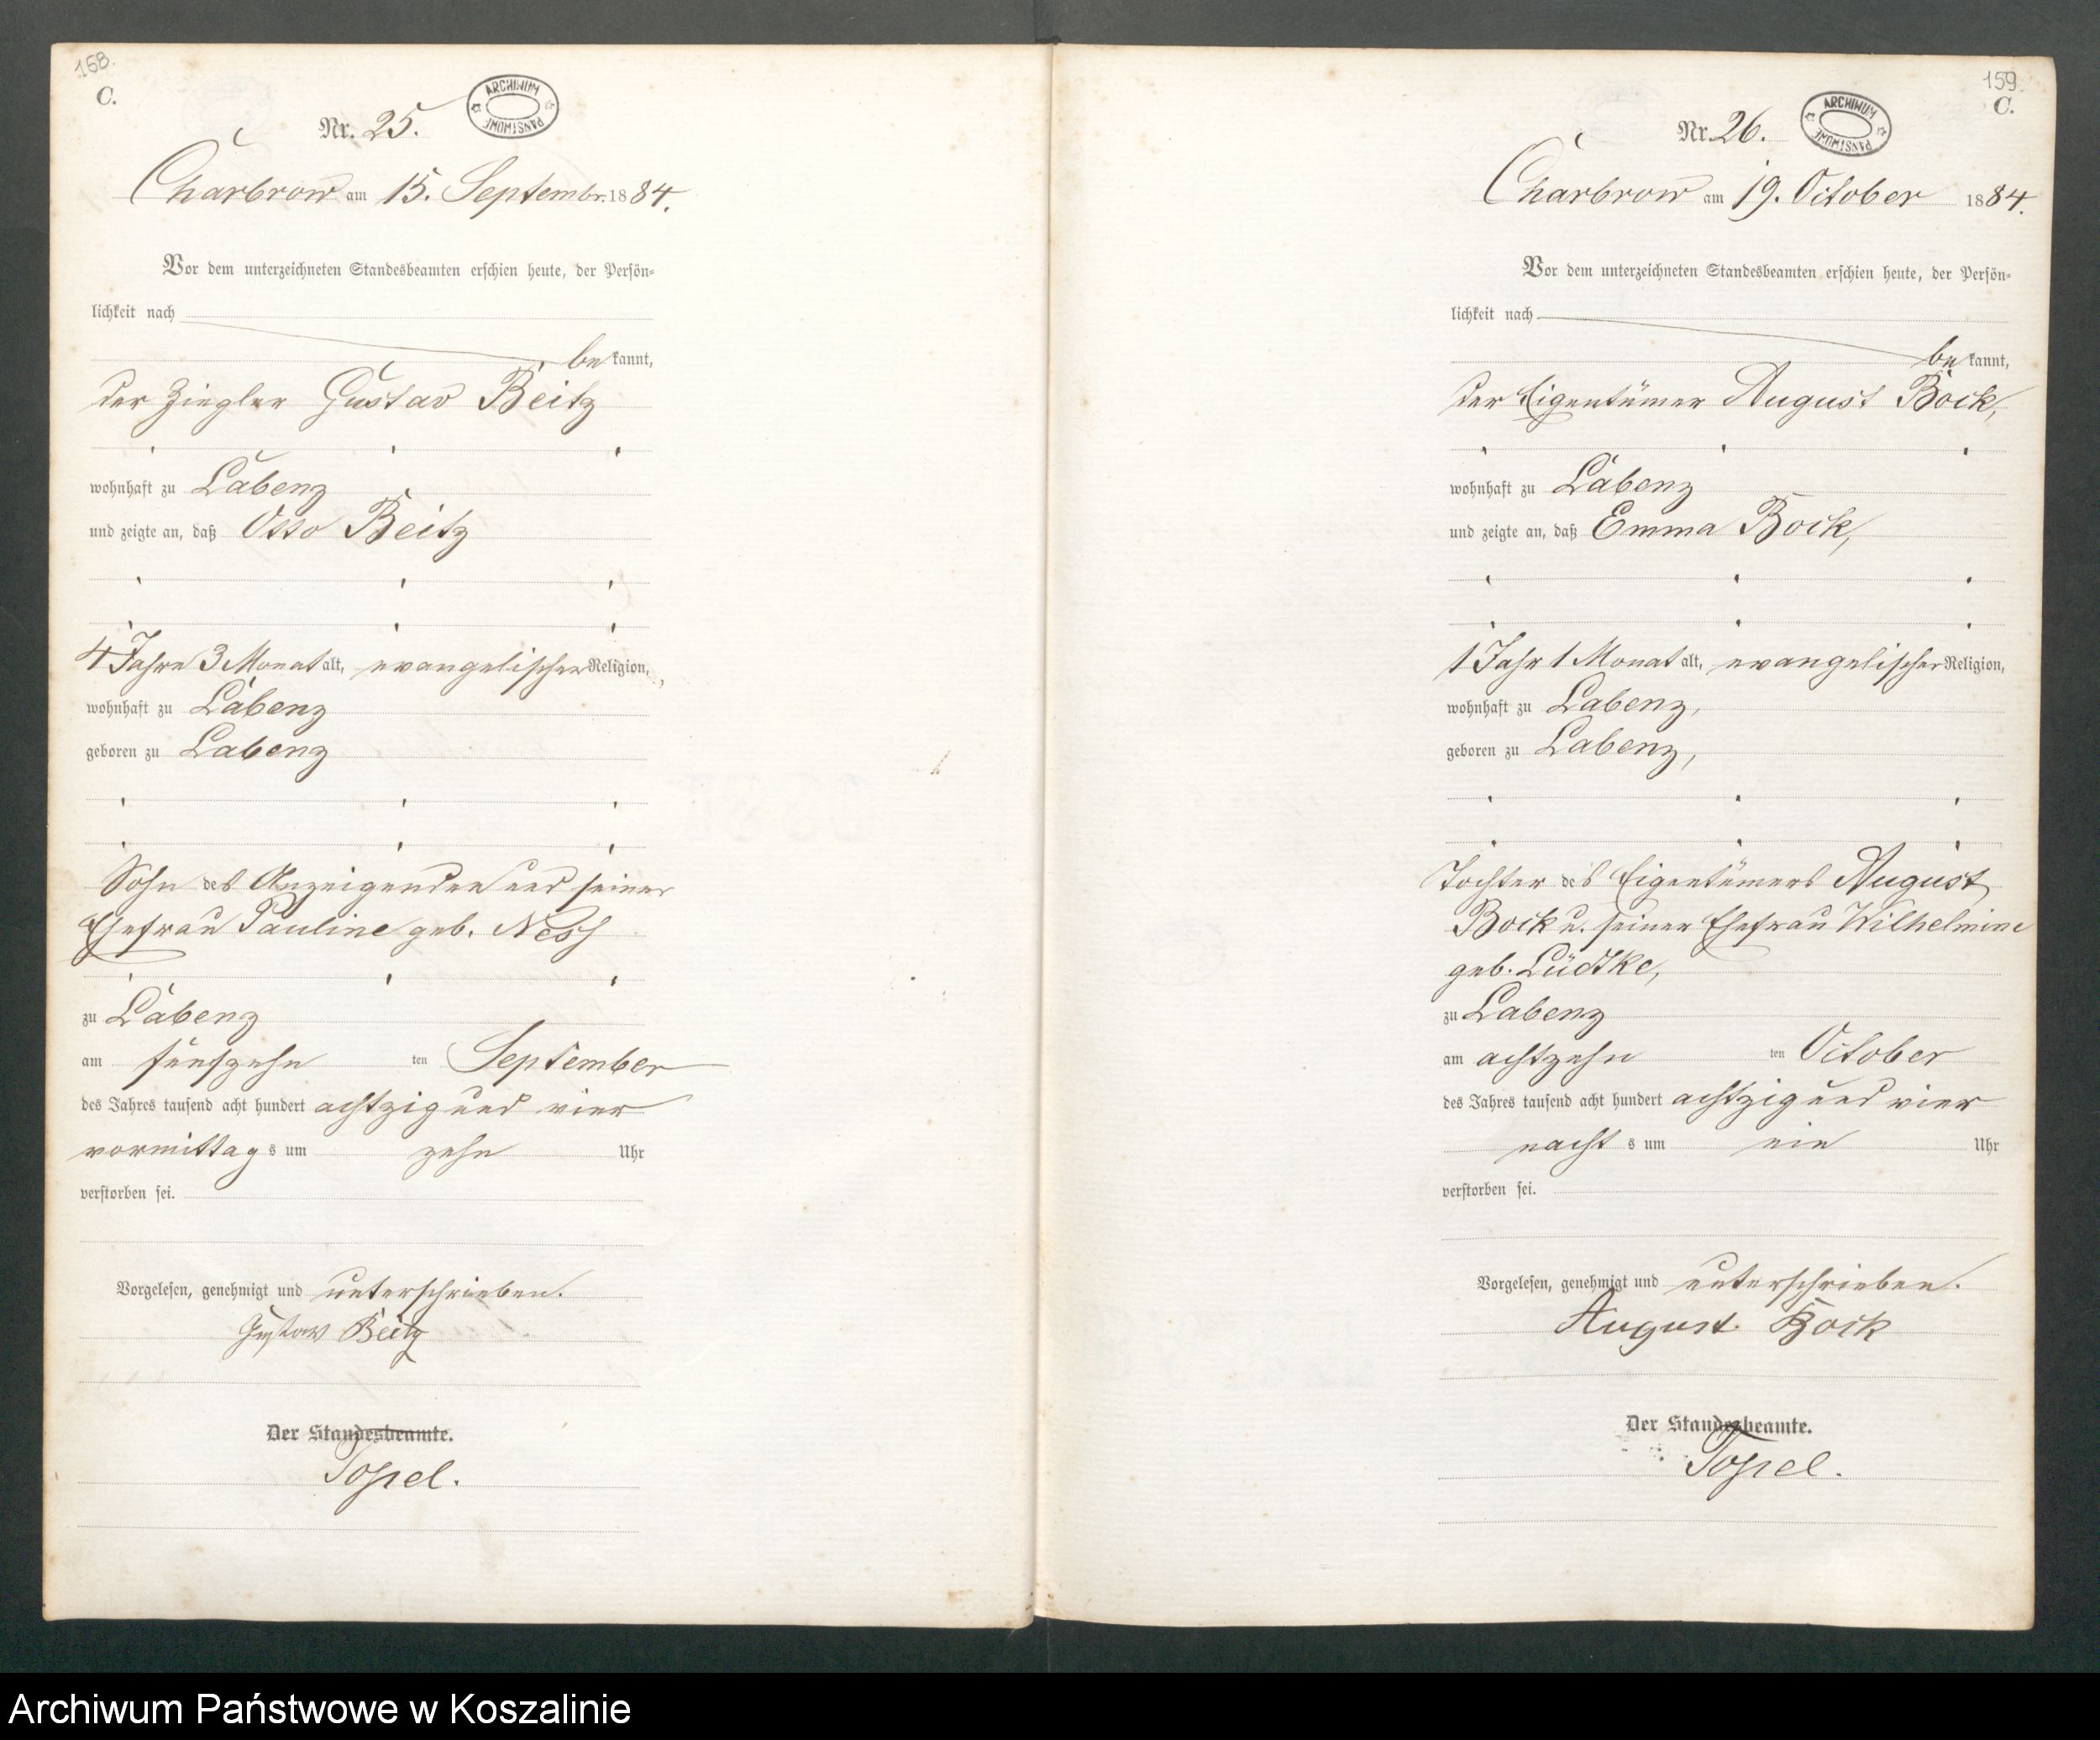 158.
C.
ARCHIWUM PAŃSTWOWE
Nr. 25.
Charbrow am 15. Septembr. 1884.
Vor dem unterzeichneten Standesbeamten erschien heute, der Persön-
lichkeit nach
bekannt,
der Ziegler Gustav Beitz
wohnhaft zu Labenz
und zeigte an, daß Otto Beitz
4 Jahre 3 Monat alt, evangelischer Religion,
wohnhaft zu Labenz
geboren zu Labenz
Sohn des Anzeigenden und seiner
Ehefrau Pauline geb. Nesß
zu Labenz
am fünfzehn ten September
des Jahres tausend acht hundert achtzig und vier
vormittags um zehn Uhr
verstorben sei.
Vorgelesen, genehmigt und unterschrieben.
Gustav Beitz
Der Standesbeamte.
Topel.
159.
C.
ARCHIWUM PAŃSTWOWE
Nr. 26.
Charbrow am 19. October 1884.
Vor dem unterzeichneten Standesbeamten erschien heute, der Persön-
lichkeit nach
bekannt,
der Eigentümer August Bock,
wohnhaft zu Labenz
und zeigte an, daß Emma Bock,
1 Jahr 1 Monat alt, evangelischer Religion,
wohnhaft zu Labenz,
geboren zu Labenz,
Tochter des Eigentümers August
Bock u. seiner Ehefrau Wilhelmine
geb. Lüdtke,
zu Labenz
am achtzehn ten October
des Jahres tausend acht hundert achtzig und vier
nachts um ein Uhr
verstorben sei.
Vorgelesen, genehmigt und unterschrieben.
August Bock
Der Standesbeamte.
Topel.
Archiwum Państwowe w Koszalinie